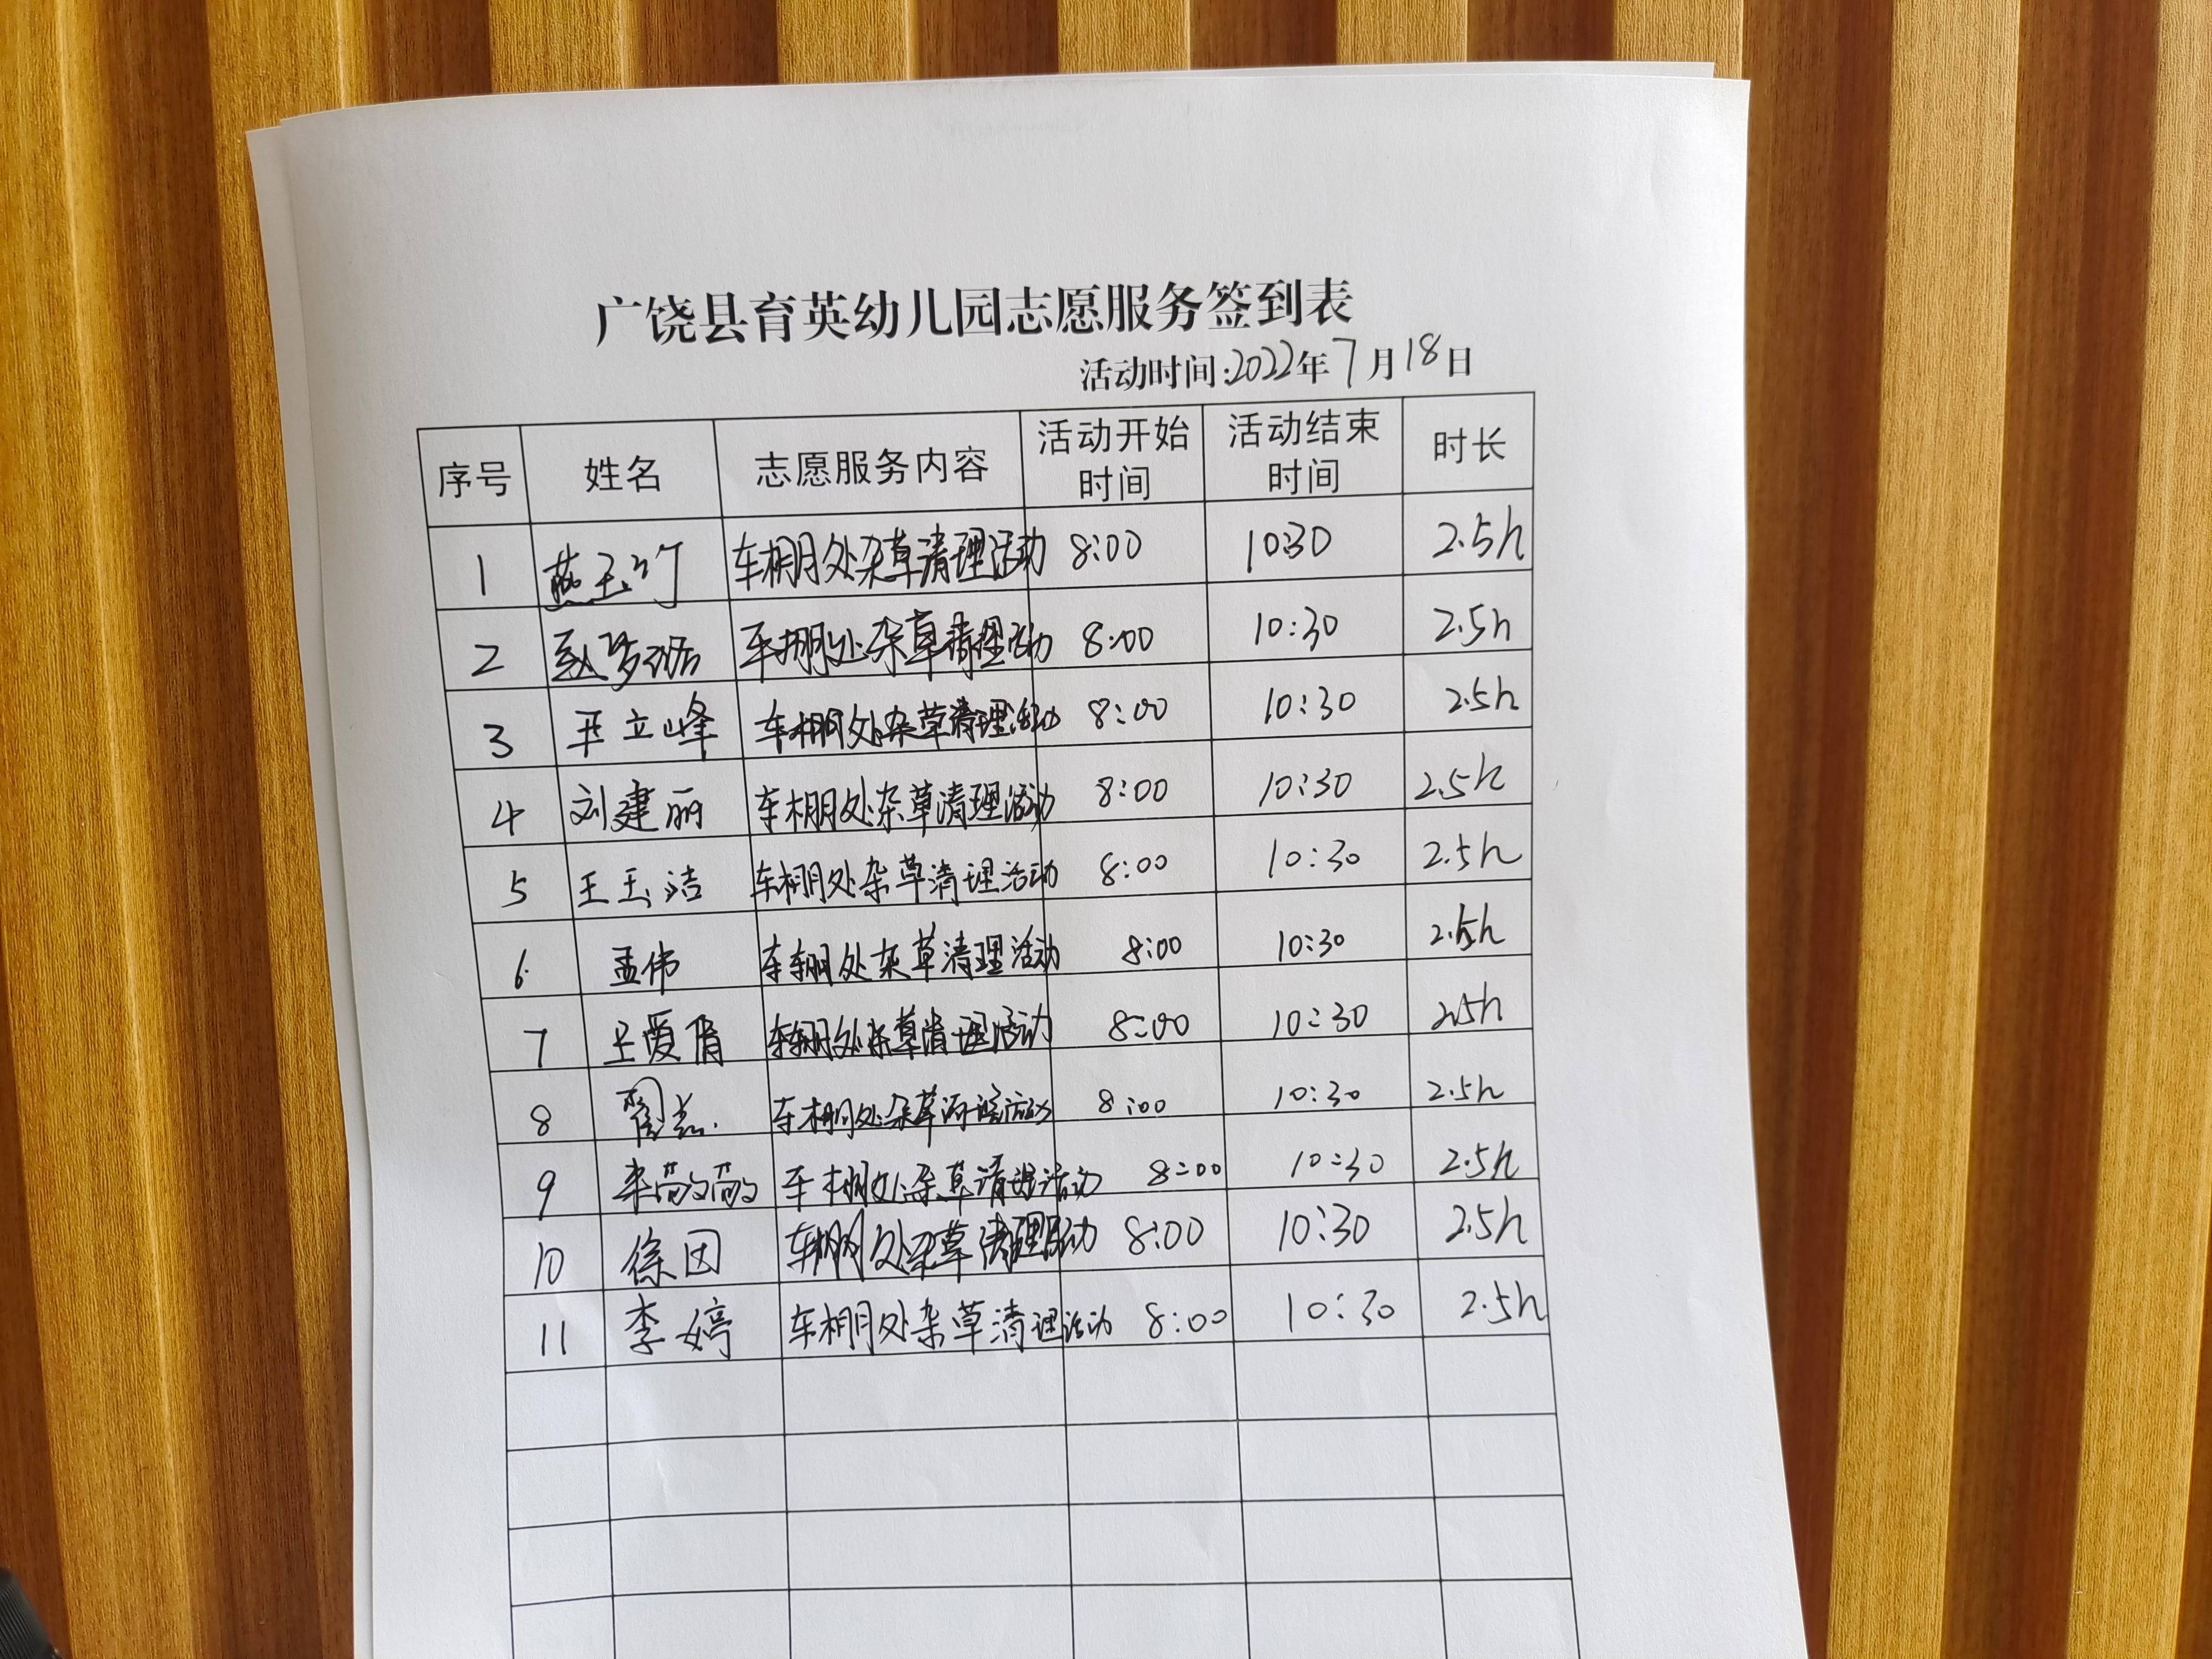 广饶县育英幼儿园志愿服务签到表
活动时间:2022年7月18日
序号 姓名 志愿服务内容 活动开始时间 活动结束时间 时长
1 燕玉竹 车棚处杂草清理活动 8:00 10:30 2.5h
2 赵梦琚 车棚处杂草清理活动 8:00 10:30 2.5h
3 王立峰 车棚处杂草清理活动 8:00 10:30 2.5h
4 刘建丽 车棚处杂草清理活动 8:00 10:30 2.5h
5 王玉洁 车棚处杂草清理活动 8:00 10:30 2.5h
6 孟伟 车棚处杂草清理活动 8:00 10:30 2.5h
7 王爱倩 车棚处杂草清理活动 8:00 10:30 2.5h
8 车棚处杂草清理活动 8:00 10:30 2.5h
9 李蒿蒿 车棚处杂草清理活动 8:00 10:30 2.5h
10 徐因 车棚处杂草清理活动 8:00 10:30 2.5h
11 李婷 车棚处杂草清理活动 8:00 10:30 2.5h